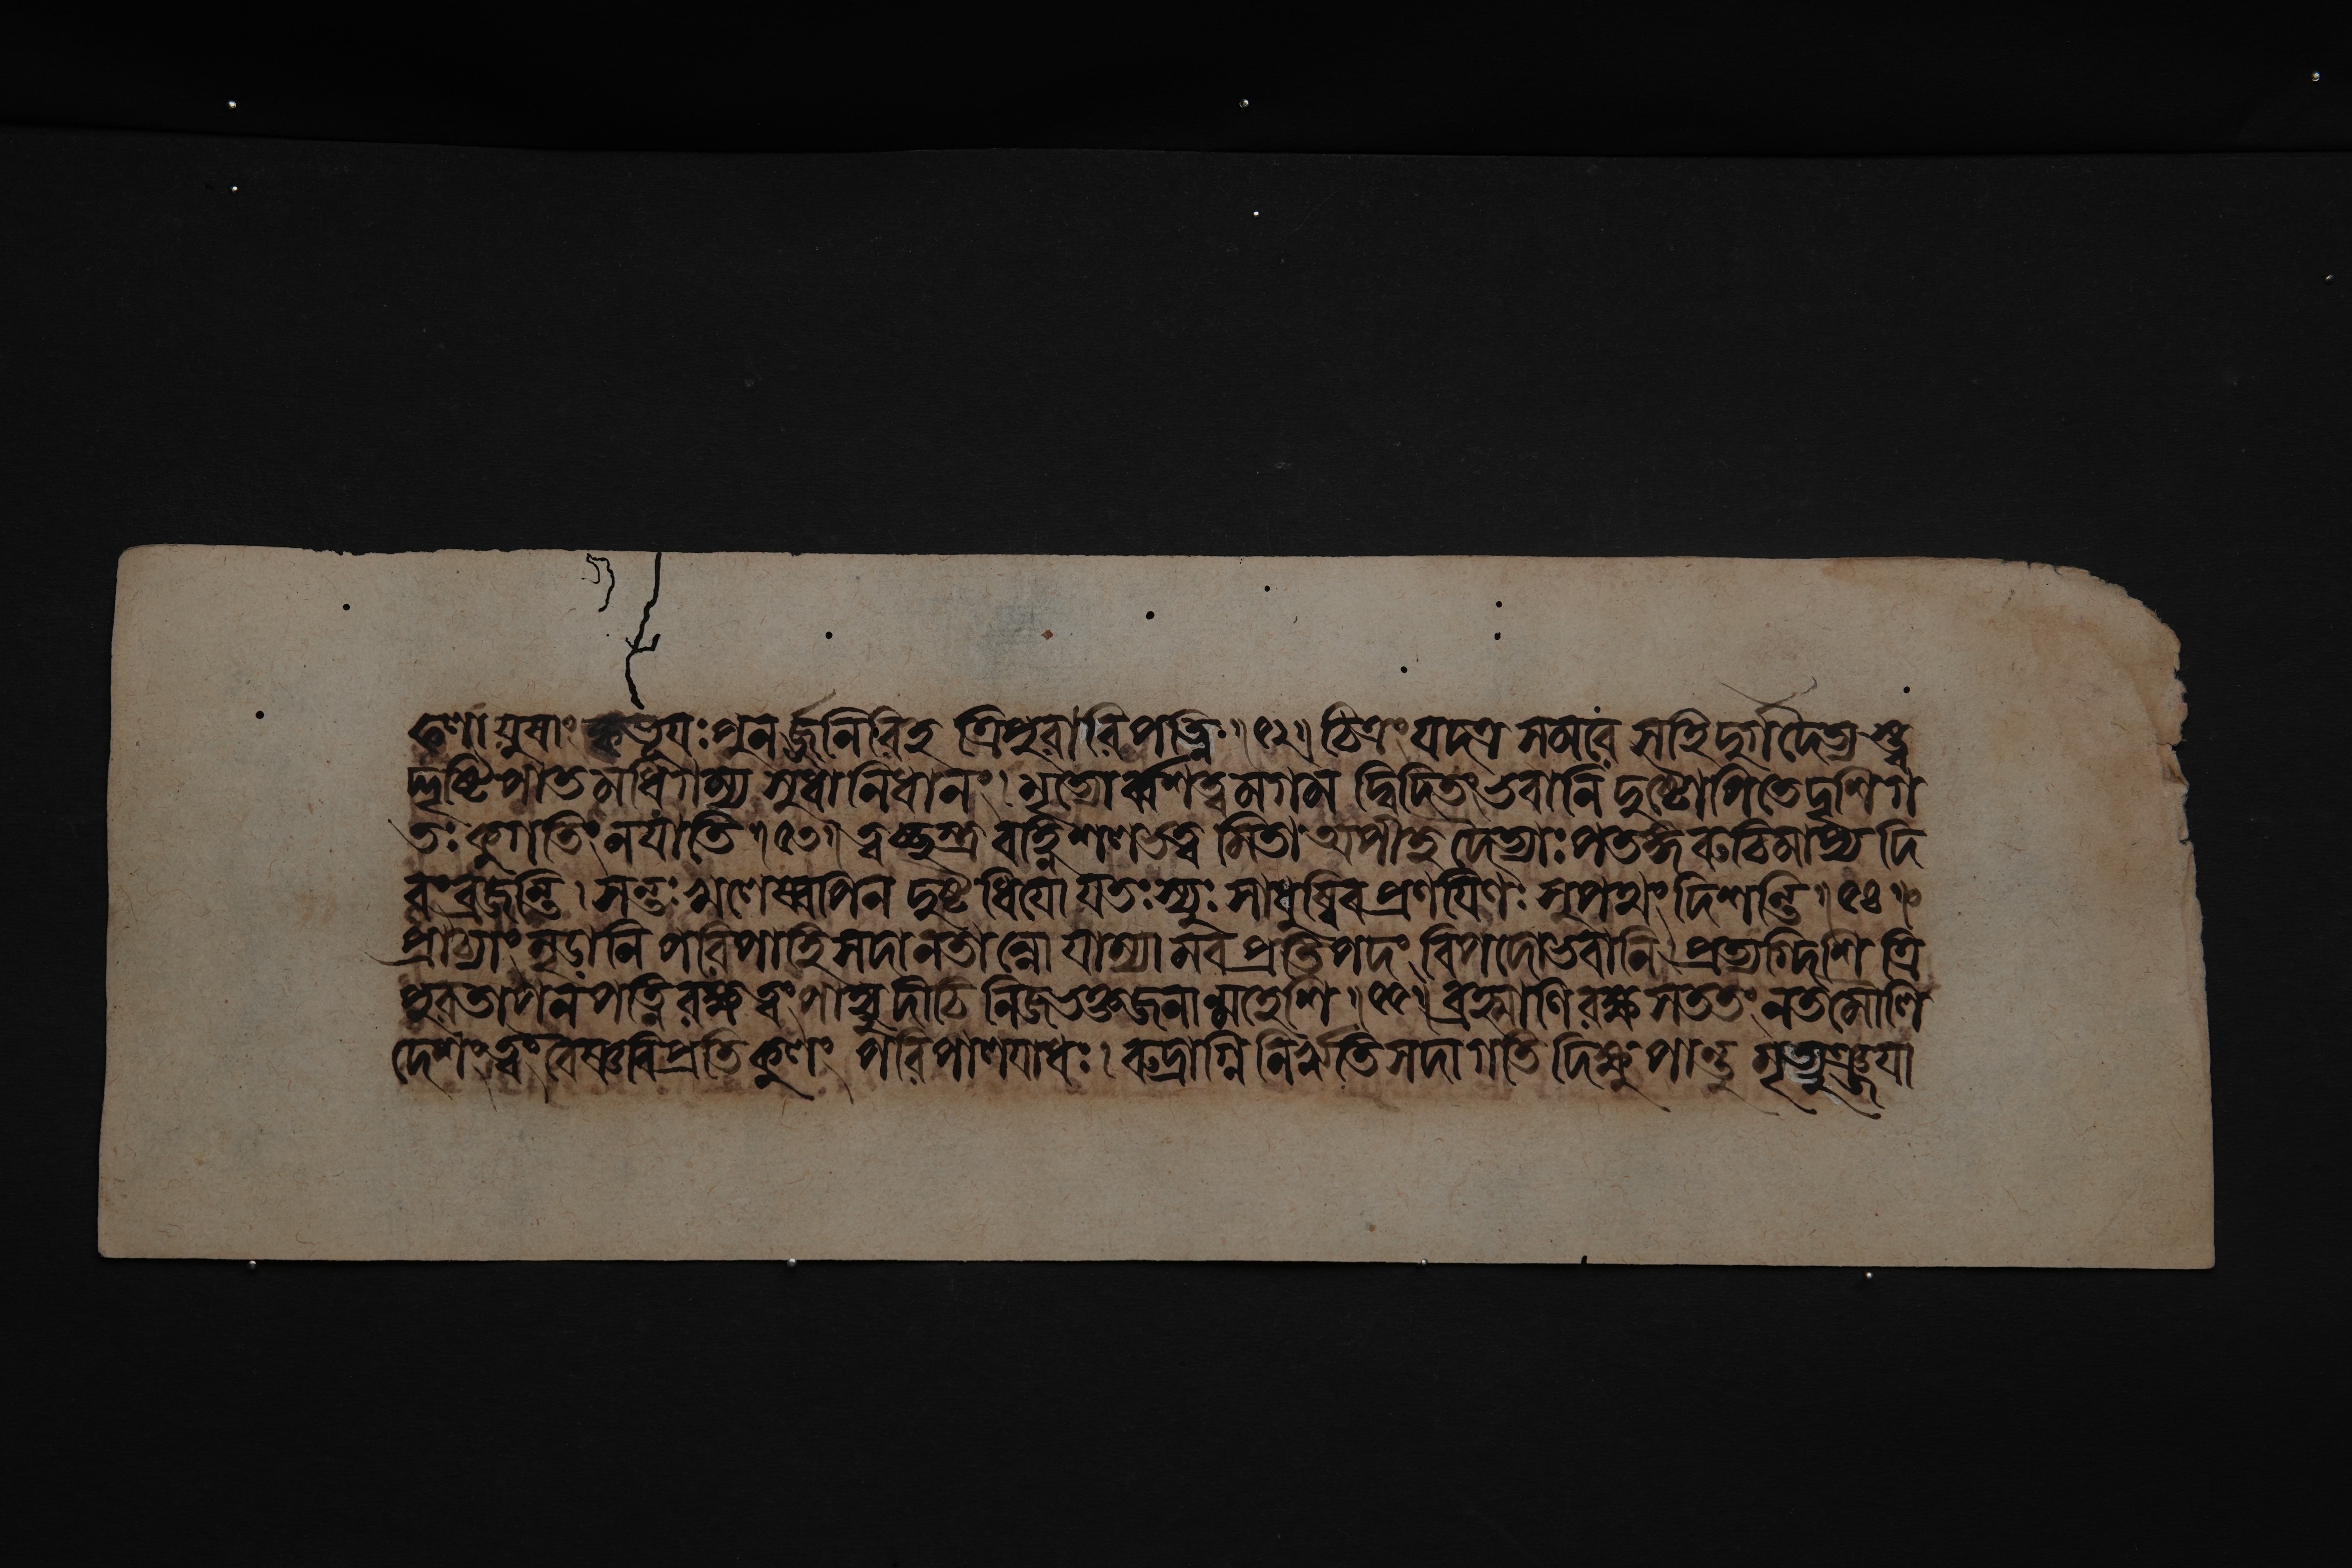 ঢেণাযুষাং ক্বভূযঃ পুনর্জ্জনিরিহ ত্রিপুরারিপত্নি॥৫২॥ চিত্রং যদত্র সমরে সহি দুর্গদৈত্যস্ত্ব
দ্দৃষ্টিপাতমধিগম্য সুধানিধানং। মৃত্যোর্ব্বশত্বমগমদ্বিদিতং ভবানি দুষ্টোপিতে দৃশিগ
তঃ কুগতিং নযাতি॥৫৩॥ ত্বচ্ছস্ত্র বহ্নিশলভত্বমিতা অপীহ দৈত্যাঃ পতঙ্গরুচিমাপ্য দি
বং ব্রজন্তি। সন্তঃ খলেষ্বপিন দুষ্টধিযো যতঃ স্যুঃ সাধুষ্বিব প্রণযিণঃ সুপথং দিশন্তি॥৫৪॥
প্রাচ্যাং মৃডানি পরিপাহি সদানতান্নো যাম্যামব প্রতিপদং বিপদো ভবানি। প্রত্যগ্দিশি ত্রি
পুরতাপন পত্নি রক্ষ ত্বং পাহ্যুদীচি নিজভক্তজনান্মহেশি॥৫৫॥ ব্রহ্মাণি রক্ষ সততং নতমৌলি
দেশং ত্বং বৈষ্ণবি প্রতিকুলং পরিপালযাধঃ। রুদ্রাগ্নি নিরৃতি সদাগতি দিক্ষু পান্তু মৃত্যুঞ্জযা